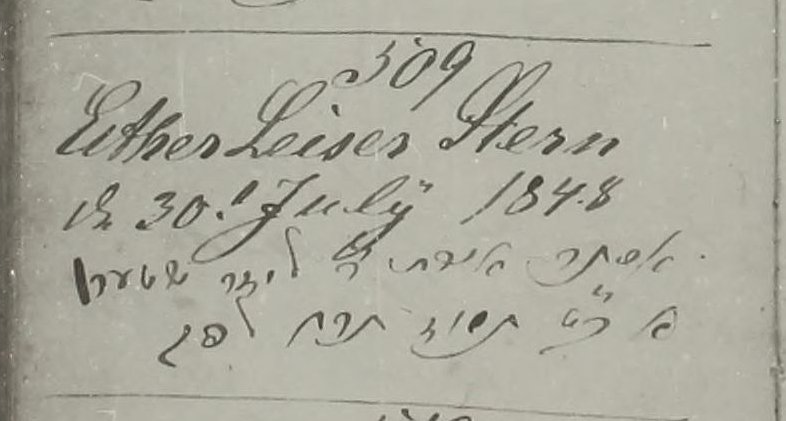 509
Esther Leiser Stern
d. 30.t July 1848
אסתר אשת ר' ליזר שטערן
א כ״ט תמוז תרח לפק